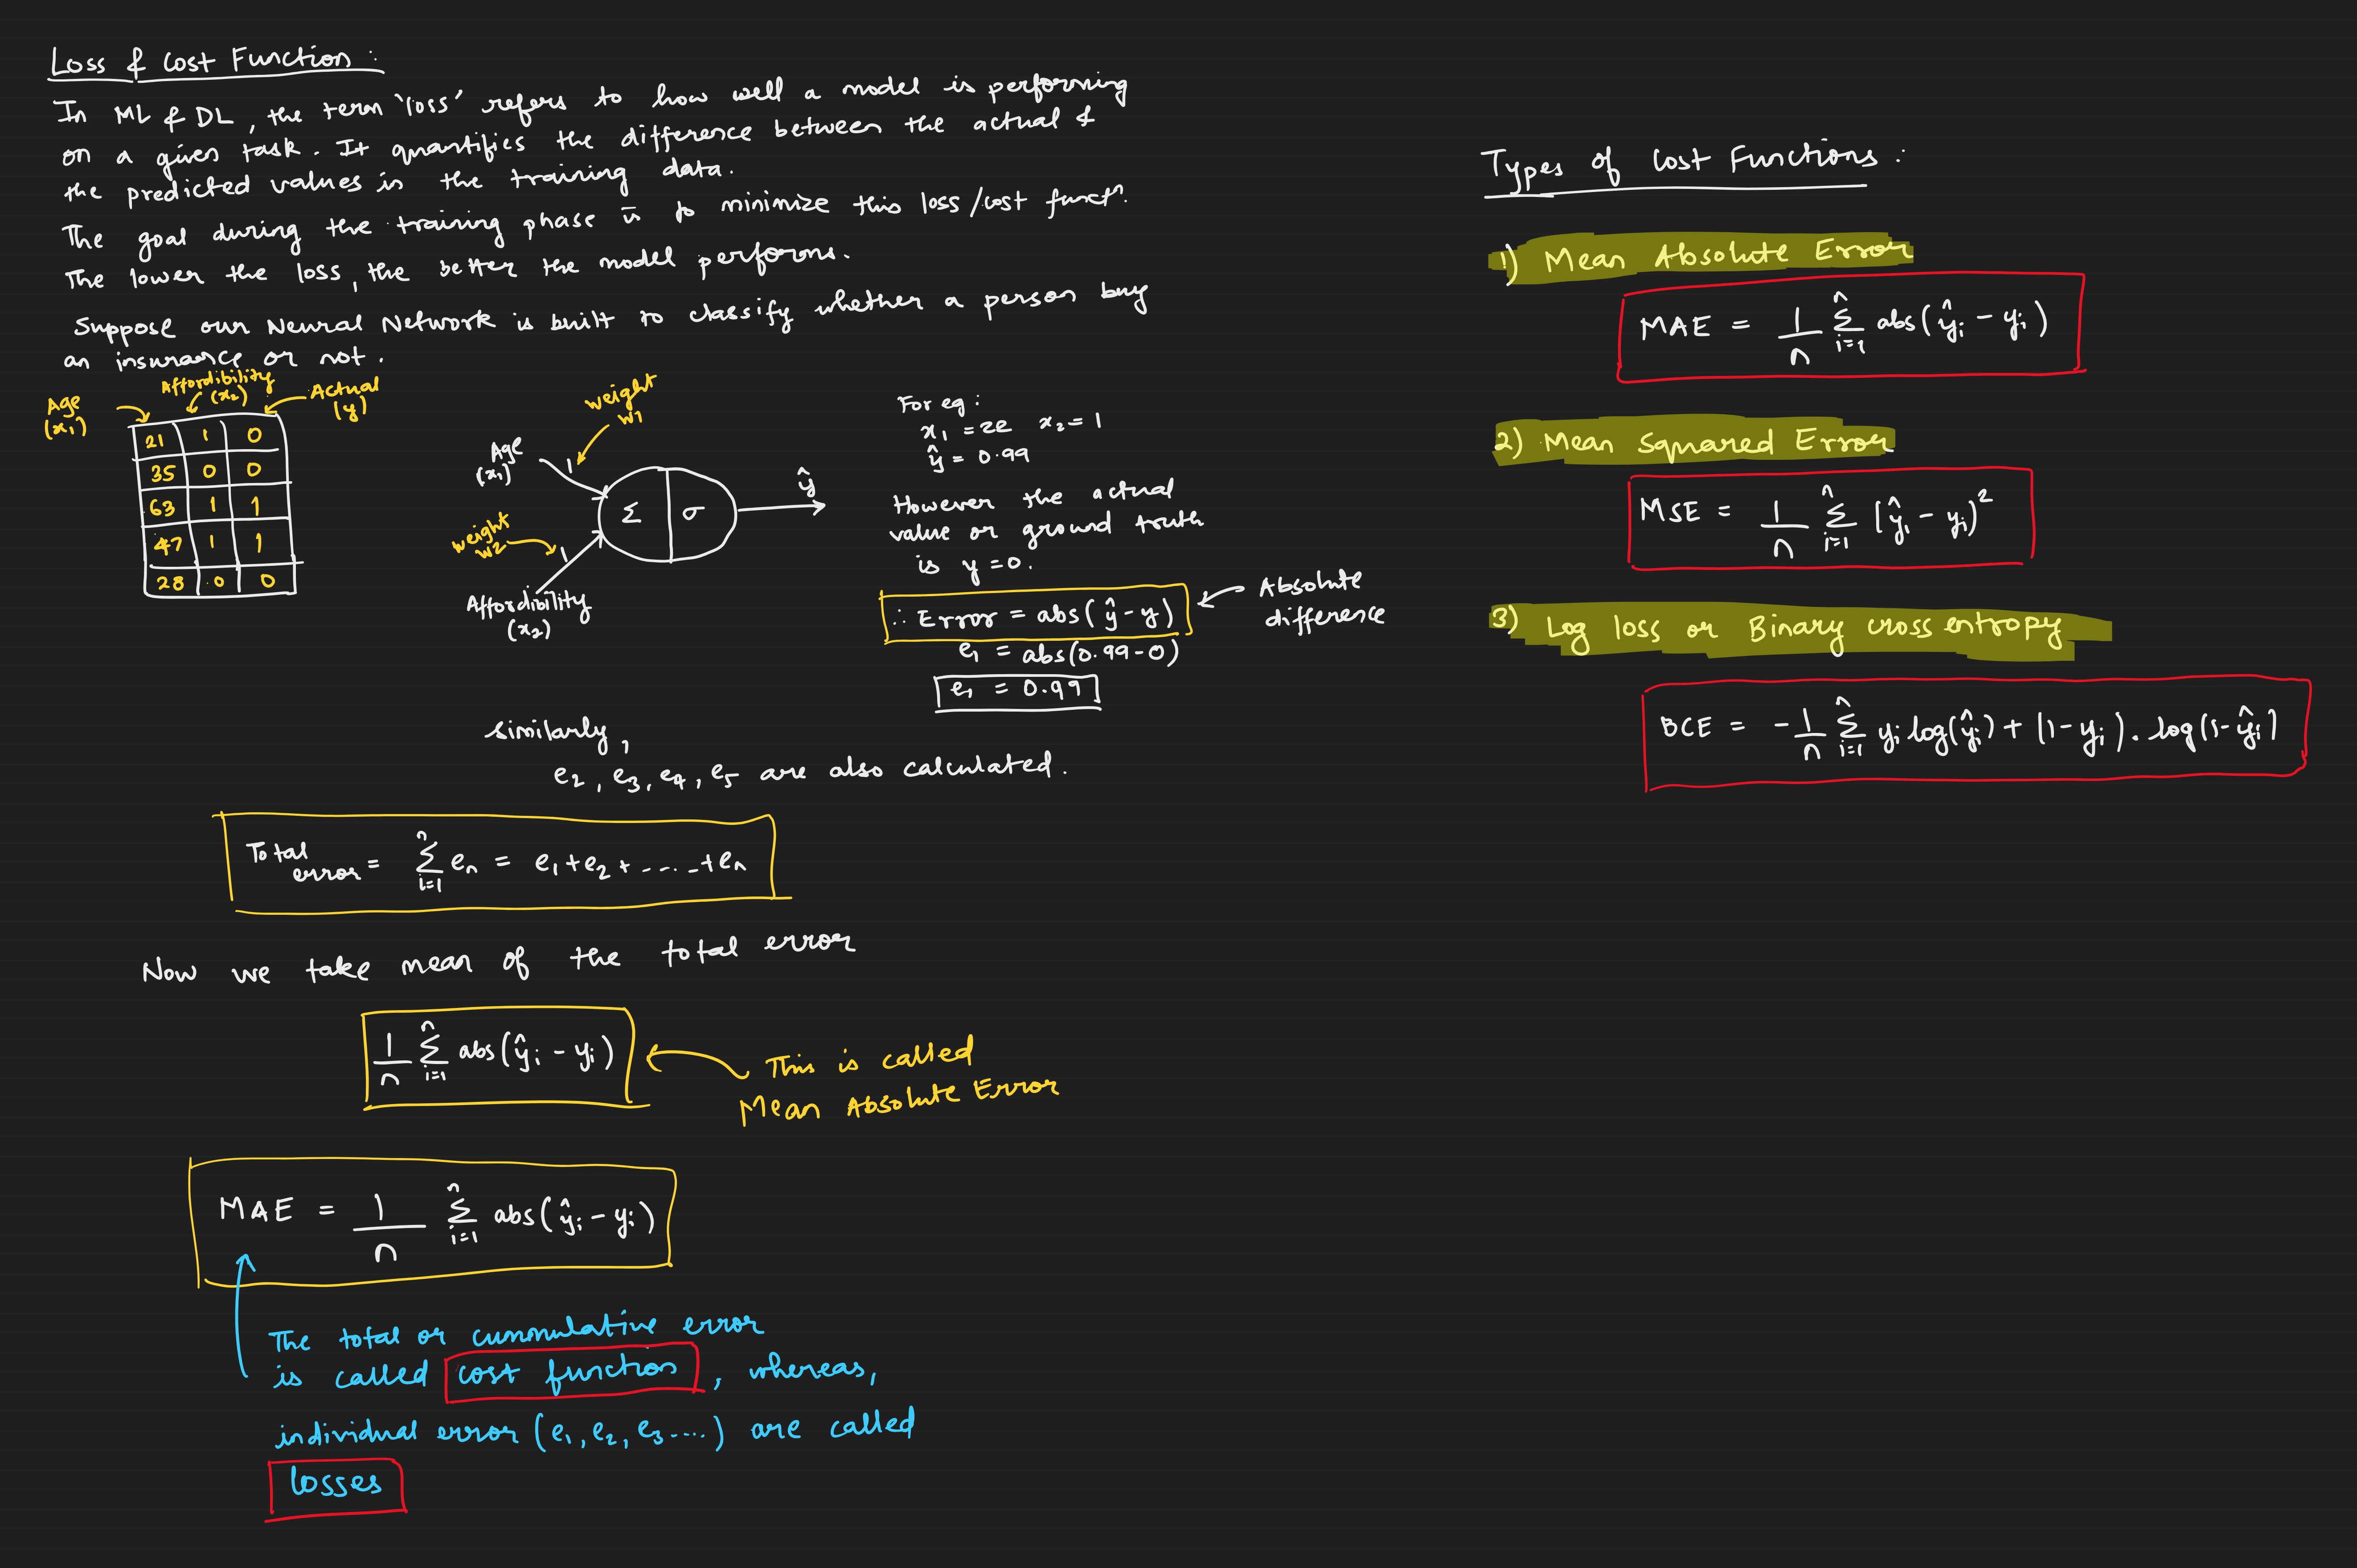 Loss & Cost Function :
In ML & DL, the term 'loss' refers to how well a model is performing
on a given task. It quantifies the difference between the actual &
the predicted values in the training data.
The goal during the training phase is to minimize this loss/cost funcⁿ.
The lower the loss, the better the model performs.
Suppose our Neural Network is built to classify whether a person buy
an insurance or not.
Age
(x₁)
Affordibility
(x₂)
Actual
(y)
21 1 0
35 0 0
63 1 1
47 1 1
28 0 0
weight
w1
Age
(x₁)
weight
w2
Affordibility
(x₂)
Σ σ
ŷ
For eg :
x₁ = 22 x₂ = 1
ŷ = 0.99
However the actual
value or ground truth
is y = 0.
∴ Error = abs(ŷ - y)
Absolute
difference
e₁ = abs(0.99 - 0)
e₁ = 0.99
similarly,
e₂, e₃, e₄, e₅ are also calculated.
Total
error = Σ i=1 n eₙ = e₁ + e₂ + ...... + eₙ
Now we take mean of the total error
1/n Σ i=1 n abs(ŷᵢ - yᵢ)
This is called
Mean Absolute Error
MAE = 1/n Σ i=1 n abs(ŷᵢ - yᵢ)
The total or cummulative error
is called cost function, whereas,
individual error (e₁, e₂, e₃....) are called
losses
Types of Cost Functions :
1) Mean Absolute Error
MAE = 1/n Σ i=1 n abs(ŷᵢ - yᵢ)
2) Mean Squared Error
MSE = 1/n Σ i=1 n (ŷᵢ - yᵢ)²
3) Log loss or Binary cross entropy
BCE = -1/n Σ i=1 n yᵢ log(ŷᵢ) + (1-yᵢ). log(1-ŷᵢ)